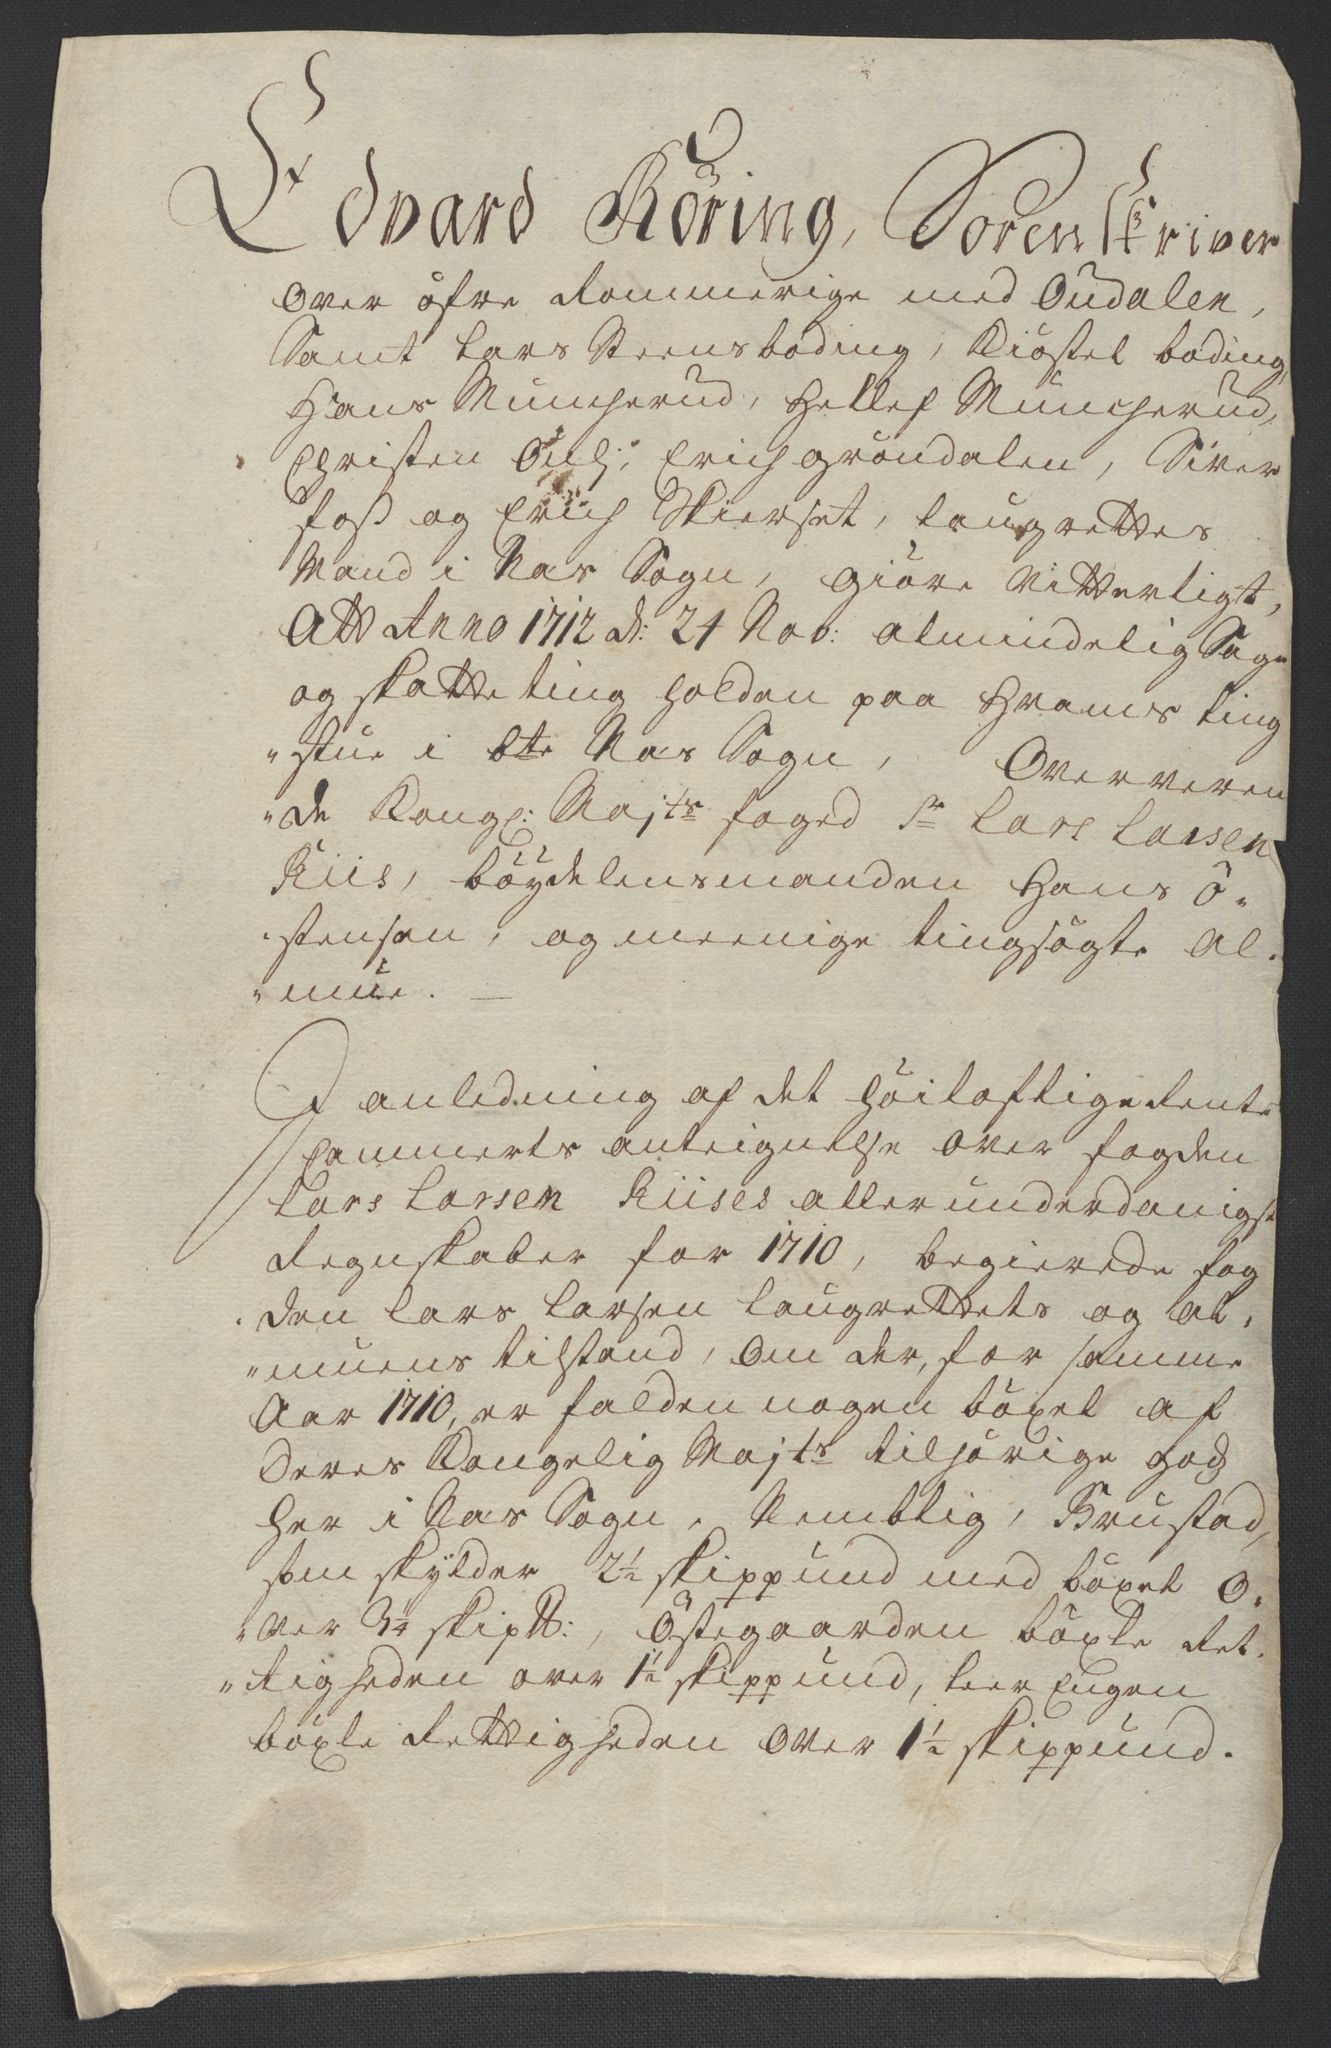 Edvard Röring, Sorenskriver
Over öfre Rommerige med Oudalen,
Samt Lars Steensboding, Kiöstel boding,
Hans Muncherud, Hellef Muncherud,
Christen Onß: Erich gröndalen, Siver
foss og Erich Skierset, laugrettes
Mænd i Næs Sogn, giöre Vitterligt,
Att Anno 1712 d: 24 Nov: almindelig Sage
og skatte ting holden paa Hvams ting
"stue i bte Næs Sogn, Oververen
"de Kongl: Majts foged Sr Lars Larsen
Riis, böÿdelensmanden Hans Ö-
-stensen, og meenige tingsögte Al-
"mue. —
I anledning af det höilaftige Rente
Cammerts anteignelse over fogden
Lars Larsen Riises allerunderdanigste
Regnskaber for 1710, begierede fog
-den Lars Larsen laugrettets og Al-
"muens tilstand, om der, for samme
Aar 1710, er falden nogen böxel af
Deres Kongelig Majts tilhörige godz
her i Næs Sogn, Nemblig, Brustad,
som skÿlder 2½ skippund med böxel o-
"ver 3¼ skip℔:, Östegaarden böxle Ret-
"tigheden over 1½ skippund, leer Engen
böxle Rettigheden over 1½ skippund.